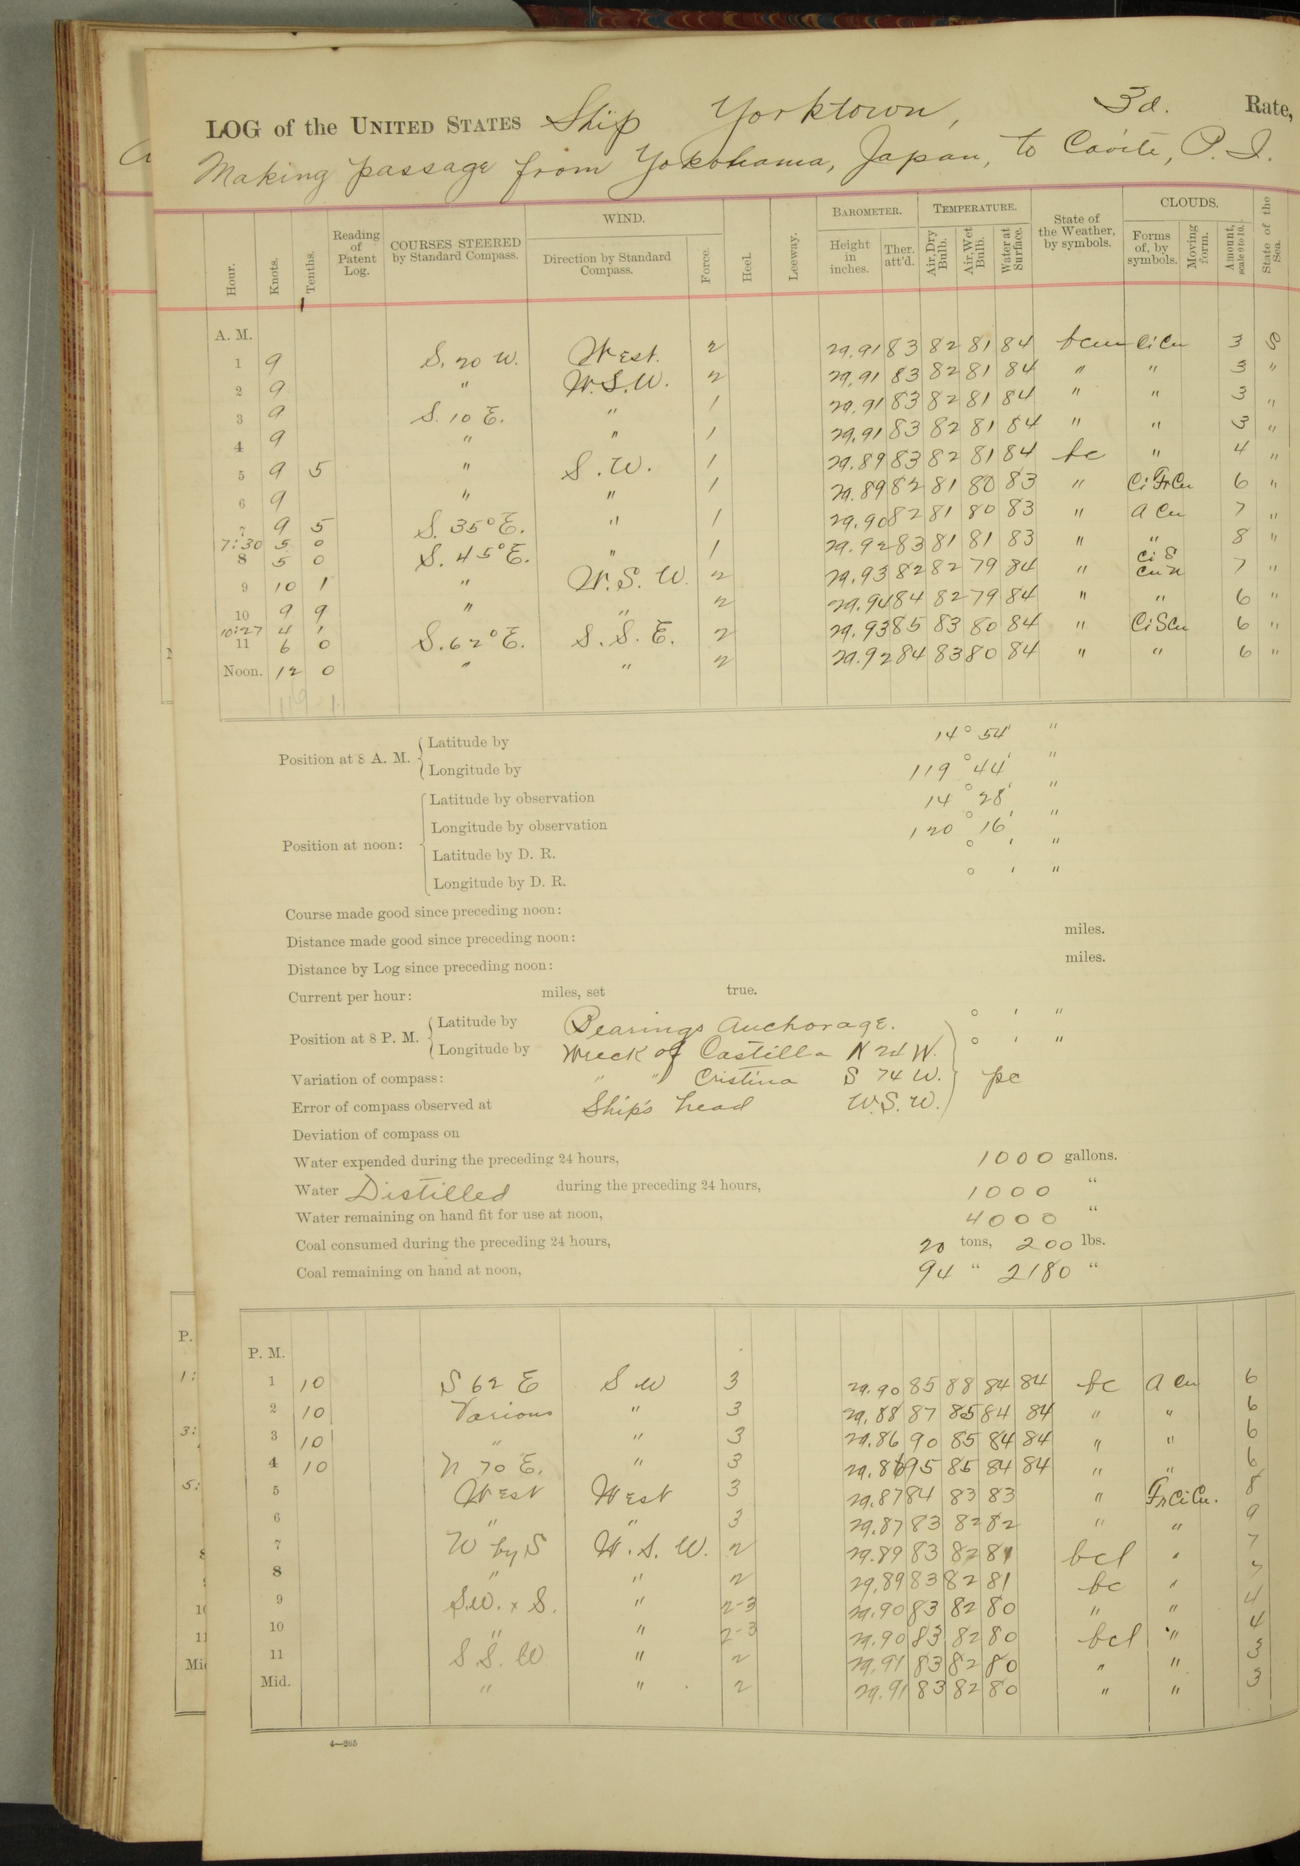 LOG of the UNITED STATES Ship Yorktown, 3d. Rate,
Making passage from Yokohama, Japan, to Cavite, P. I.
Hour. Knots. Tenths. Reading of Patent Log. COURSES STEERED by Standard Compass. WIND. Direction by Standard Compass. Force. Heel. Leeway. BAROMETER. Height in inches. Ther. att'd. TEMPERATURE. Air, Dry Bulb. Air, Wet Bulb. Water at Surface. State of the Weather, by symbols. CLOUDS. Forms of, by symbols. Moving form. Amount, scale 0 to 10. State of the Sea.
A. M.
1 9 S. 20 W. West. 2 29.91 83 82 81 84 bcm Ci Cu 3 S
2 9 " W.S.W. 2 29.91 83 82 81 84 " " 3 "
3 9 S. 10 E. " 1 29.91 83 82 81 84 " " 3 "
4 9 " " 1 29.91 83 82 81 84 " " 3 "
5 9 5 " S.W. 1 29.89 83 82 81 84 bc " 4 "
6 9 " " 1 29.89 82 81 80 83 " Ci Fr Cu 6 "
7 9 5 S. 35° E. " 1 29.90 82 81 80 83 " a Cu 7 "
7:30 5 0
8 5 0 S. 45° E. " 1 29.92 83 81 81 83 " " 8 "
9 10 1 " W.S.W. 2 29.93 82 82 79 84 " Ci S Cu N 7 "
10 9 9 " " 2 29.94 84 82 79 84 " " 6 "
10:27 4 1
11 6 0 S. 62° E. S.S.E. 2 29.93 85 83 80 84 " Ci S Cu 6 "
Noon. 12 0 " " 2 29.92 84 83 80 84 " " 6 "
119 1
Position at 8 A. M. Latitude by 14° 54' "
Longitude by 119° 44' "
Position at noon: Latitude by observation 14° 28' "
Longitude by observation 120° 16' "
Latitude by D. R. ° ' "
Longitude by D. R. ° ' "
Course made good since preceding noon:
Distance made good since preceding noon: miles.
Distance by Log since preceding noon: miles.
Current per hour: miles, set true.
Position at 8 P. M. Latitude by Bearings Anchorage. ° ' "
Longitude by Wreck of Castilla N 2d W. ° ' "
Variation of compass: " " Cristina S 74 W. pc
Error of compass observed at Ship's head W.S.W.
Deviation of compass on
Water expended during the preceding 24 hours, 1000 gallons.
Water Distilled during the preceding 24 hours, 1000 "
Water remaining on hand fit for use at noon, 4000 "
Coal consumed during the preceding 24 hours, 20 tons, 200 lbs.
Coal remaining on hand at noon, 94 " 2180 "
P. M.
1 10 S 62 E SW 3 29.90 85 88 84 84 bc a Cu 6
2 10 Various " 3 29.88 87 85 84 84 " " 6
3 10 " " 3 29.86 90 85 84 84 " " 6
4 10 N 70 E. " 3 29.86 95 85 84 84 " " 6
5 West West 3 29.87 84 83 83 " Fr Ci Cu. 8
6 " " 3 29.87 83 82 82 " " 9
7 W by S W.S.W. 2 29.89 83 82 81 bcl " 7
8 " " 2 29.89 83 82 81 bc " 7
9 S.W. x S. " 2-3 29.90 83 82 80 " " 4
10 " " 2-3 29.90 83 82 80 bcl " 4
11 S.S.W " 2 29.91 83 82 80 " " 3
Mid. " " 2 29.91 83 82 80 " " 3
4—265